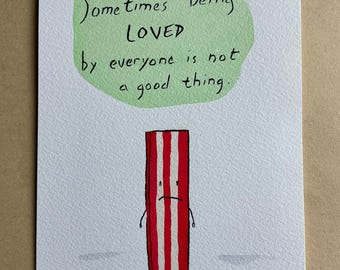 Sometimes being
LOVED
by everyone is not
a good thing.